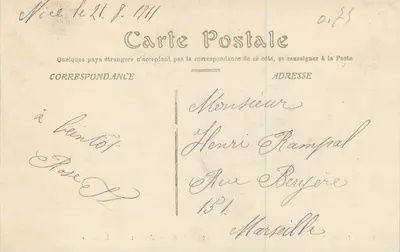 Nice le 21.8.1911
0.75
Carte Postale
Quelques pays étrangers n'acceptant pas la correspondance de ce côté, se renseigner à la Poste
CORRESPONDANCE
ADRESSE
à bientôt
Rose
Monsieur
Henri Rampal
Rue Bruyère
151
Marseille